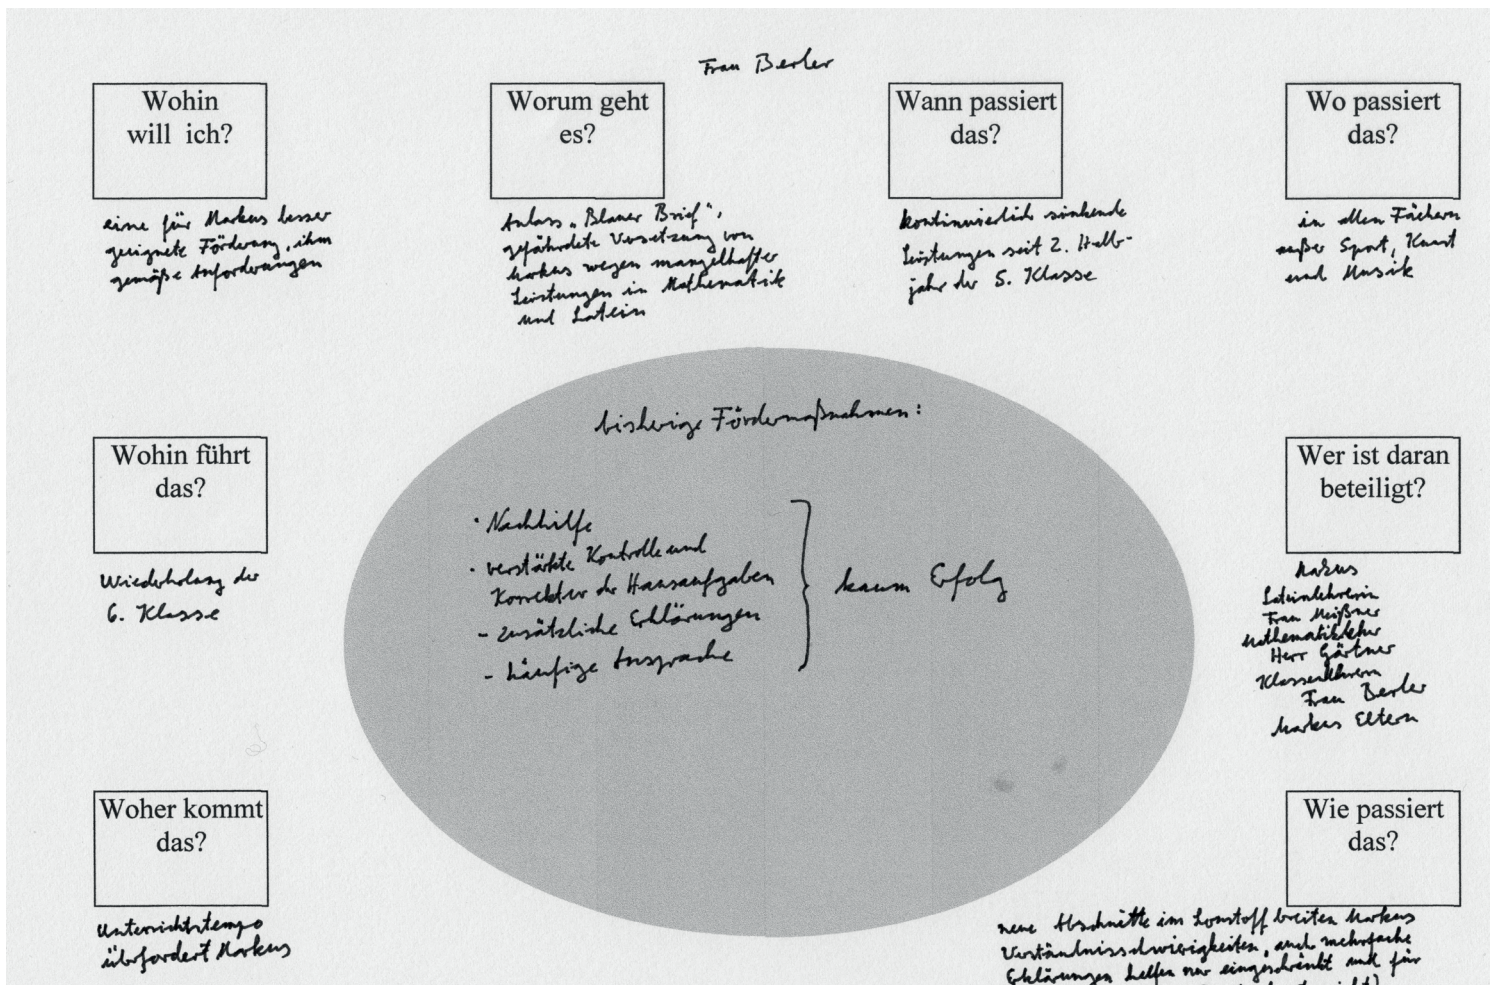 Frau Berler
Wohin
will ich?
eine für Markus besser
geeignete Förderung, ihm
gemäße Anforderungen
Worum geht
es?
Anlass „Blauer Brief“,
gefährdete Versetzung von
Markus wegen mangelhafter
Leistungen in Mathematik
und Latein
Wann passiert
das?
kontinuierlich sinkende
Leistungen seit 2. Halb-
jahr der 5. Klasse
Wo passiert
das?
in allen Fächern
außer Sport, Kunst
und Musik
bisherige Fördermaßnahmen:
· Nachhilfe
· verstärkte Kontrolle und
Korrektur der Hausaufgaben
- zusätzliche Erklärungen
- häufige Ansprache
kaum Erfolg
Wohin führt
das?
Wiederholung der
6. Klasse
Wer ist daran
beteiligt?
Markus
Lateinlehrerin
Frau Meißner
Mathematiklehrer
Herr Gärtner
Klassenlehrerin
Frau Berler
Markus Eltern
Woher kommt
das?
Unterrichtstempo
überfordert Markus
Wie passiert
das?
neue Abschnitte im Lernstoff breiten Markus
Verständnisschwierigkeiten, auch mehrfache
Erklärungen helfen nur eingeschränkt und für